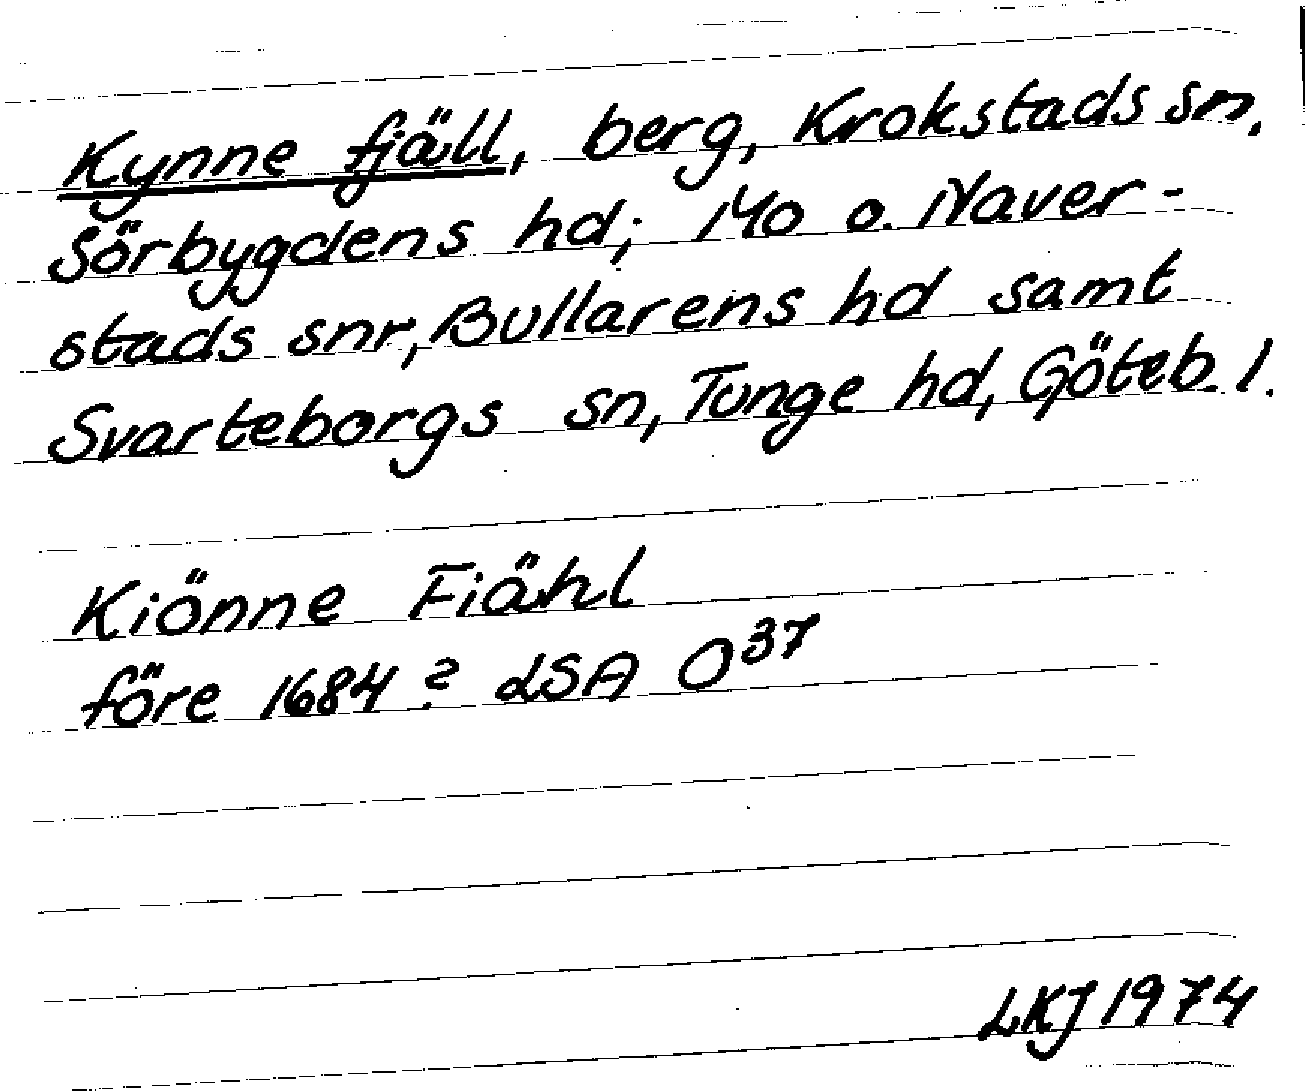 Kynne fjäll, berg, Krokstads sn.
Sörbygdens hd; Mo o. Naver-
stads snr, Bullarens hd samt
Svarteborgs sn, Tunge hd, Göteb. l.
Kiönne Fiähl
före 1684? LSA O³⁷
LKJ 1974